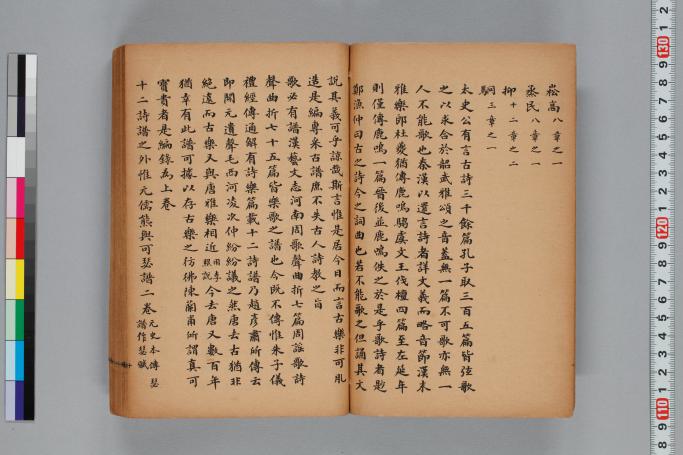 崧高八章之一
烝民八章之一
抑十二章之二
駉三章之一
太史公有言古詩三千餘篇孔子取三百五篇皆弦歌
之以求合於韶武雅頌之音蓋無一篇不可歌亦無一
人不能歌也秦漢以還言詩者詳文義而略音節漢末
雅樂郎杜夔猶傳鹿鳴騶虞文王伐檀四篇至左延年
則僅傳鹿鳴一篇晉後並鹿鳴佚之於是乎歌詩者尟
鄭漁仲曰古之詩今之詞曲也若不能歌之但誦其文
說其義可乎諒哉斯言惟是居今日而言古樂非可肊
造是編專采古譜庶不失古人詩教之旨
歌必有譜漢藝文志河南周歌聲曲折七篇周謠歌詩
聲曲折七十五篇皆樂歌之譜也今既不傳惟朱子儀
禮經傳通解有詩樂篇載十二詩譜乃趙彥肅所傳云
即開元遺聲毛西河凌次仲紛紛議之然唐去古猶非
絕遠而古樂又與唐雅樂相近用李照說今去唐又數百年
猶幸有此譜可據以存古樂之彷彿陳蘭甫所謂真可
寶貴者是編錄為上卷
十二詩譜之外惟元儒熊與可瑟譜二卷元史本傳瑟譜作瑟賦
130
120
110